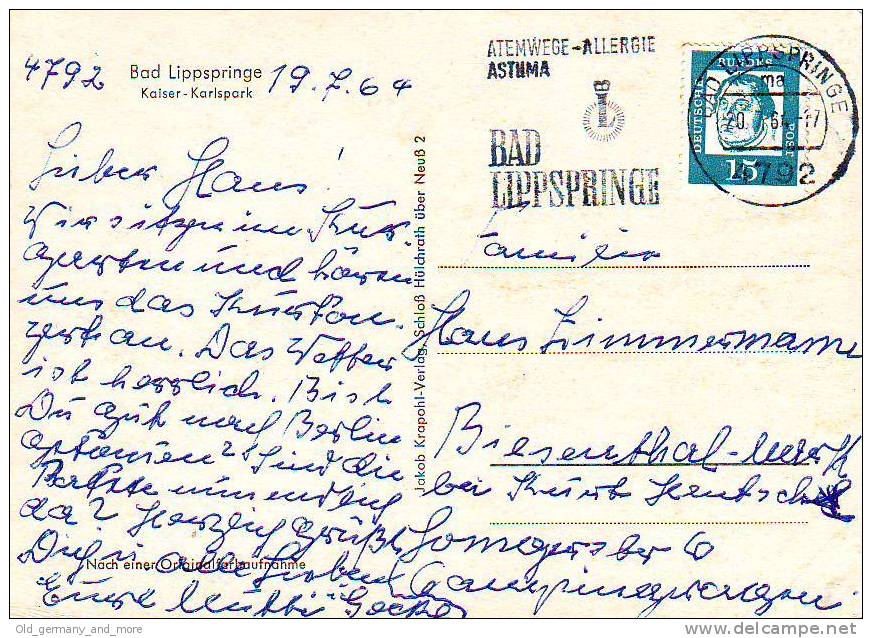 4792 Bad Lippspringe 19.7.64
Kaiser-Karlspark
Lieber Hans!
Wir sitzen im Kur-
garten und hören
uns das Kurkon-
zert an. Das Wetter
ist herrlich. Bist
Du gut nach Berlin
gekommen? Sind die
Pakete nun endlich
da? Herzlich grüßt
Dich u. alle Lieben
Eure Mutti
Nach einer Originalfarbaufnahme
Jakob Krapohl-Verlag, Schloß Hülchrath über Neuß 2
ATEMWEGE-ALLERGIE
ASTHMA
BAD
LIPPSPRINGE
DEUTSCHE BUNDES POST
15
BAD LIPPSPRINGE
ma
20. 64-17
4792
Familie
Hans Zimmermann
Biesenthal-Mark
bei Kurt Hentschel
6
Campingwagen
Old_germany_and_more
www.delcampe.net